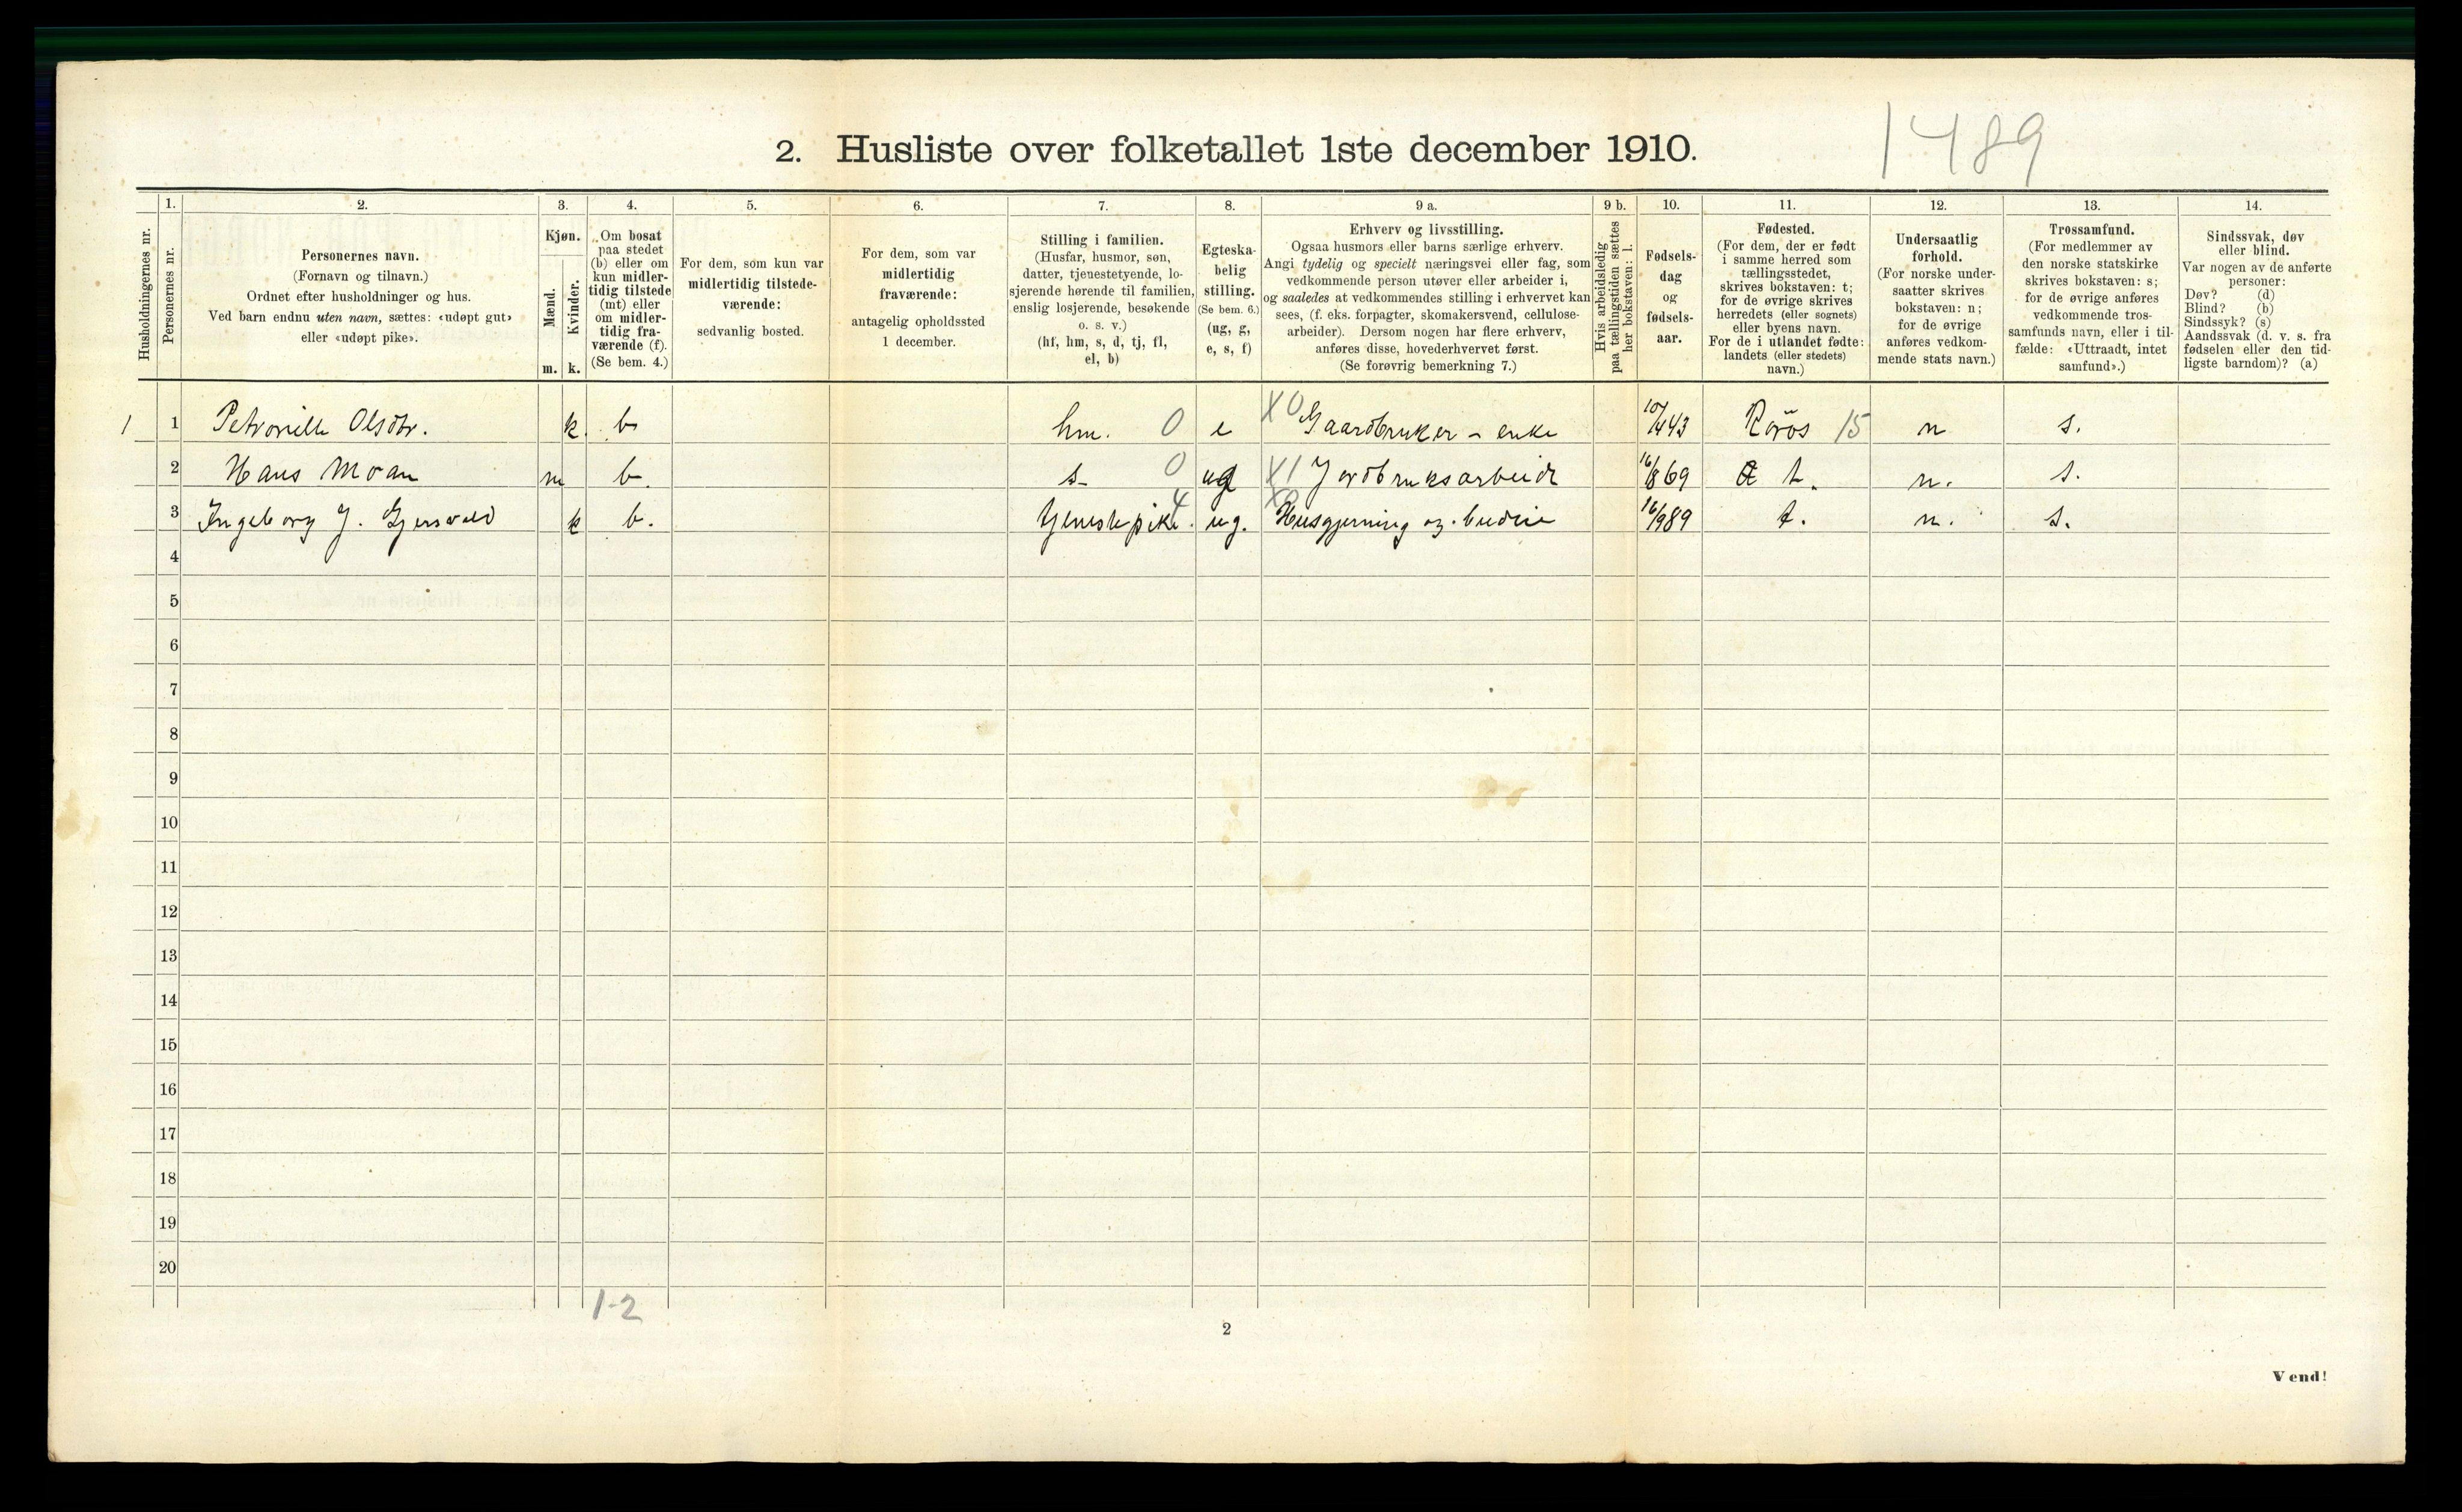 1489
2. Husliste over folketallet 1ste december 1910.
Husholdningernes nr.
1.
Personernes nr.
2.
Personernes navn.
(Fornavn og tilnavn.)
Ordnet efter husholdninger og hus.
Ved barn endnu uten navn, sættes: «udøpt gut»
eller «udøpt pike».
3.
Kjøn.
Mænd.
Kvinder.
m. k.
4.
Om bosat
paa stedet
(b) eller om
kun midler-
tidig tilstede
(mt) eller
om midler-
tidig fra-
værende (f).
(Se bem. 4.)
5.
For dem, som kun var
midlertidig tilstede-
værende:
sedvanlig bosted.
6.
For dem, som var
midlertidig
fraværende:
antagelig opholdssted
1 december.
7.
Stilling i familien.
(Husfar, husmor, søn,
datter, tjenestetyende, lo-
sjerende hørende til familien,
enslig losjerende, besøkende
o. s. v.)
(hf, hm, s, d, tj, fl,
el, b)
8.
Egteska-
belig
stilling.
(Se bem. 6.)
(ug, g,
e, s, f)
9 a.
Erhverv og livsstilling.
Ogsaa husmors eller barns særlige erhverv.
Angi tydelig og specielt næringsvei eller fag, som
vedkommende person utøver eller arbeider i,
og saaledes at vedkommendes stilling i erhvervet kan
sees, (f. eks. forpagter, skomakersvend, cellulose-
arbeider). Dersom nogen har flere erhverv,
anføres disse, hovederhvervet først.
(Se forøvrig bemerkning 7.)
9 b.
Hvis arbeidsledig
paa tællingstiden sættes
her bokstaven: l.
10.
Fødsels-
dag
og
fødsels-
aar.
11.
Fødested.
(For dem, der er født
i samme herred som
tællingsstedet,
skrives bokstaven: t;
for de øvrige skrives
herredets (eller sognets)
eller byens navn.
For de i utlandet fødte:
landets (eller stedets)
navn.)
12.
Undersaatlig
forhold.
(For norske under-
saatter skrives
bokstaven: n;
for de øvrige
anføres vedkom-
mende stats navn.)
13.
Trossamfund.
(For medlemmer av
den norske statskirke
skrives bokstaven: s;
for de øvrige anføres
vedkommende tros-
samfunds navn, eller i til-
fælde: «Uttraadt, intet
samfund».)
14.
Sindssvak, døv
eller blind.
Var nogen av de anførte
personer:
Døv? (d)
Blind? (b)
Sindssyk? (s)
Aandssvak (d. v. s. fra
fødselen eller den tid-
ligste barndom)? (a)
1 1 Petronille Olsdtr. k. b hm. 0 e X0 Gaardbruker - enke 10/4 43 Röros 15 n s.
2 Hans Moan m b. s- 0 ug X1 Jordbruksarbeide 16/8 69 t. n. s.
3 Ingeborg J. Gjersvold k b. tjenestepike. 4 ug. Husgjerning og budeie 16/9 89 t. n. s.
4
5
6
7
8
9
10
11
12
13
14
15
16
17
18
19
20
1-2
2
Vend!